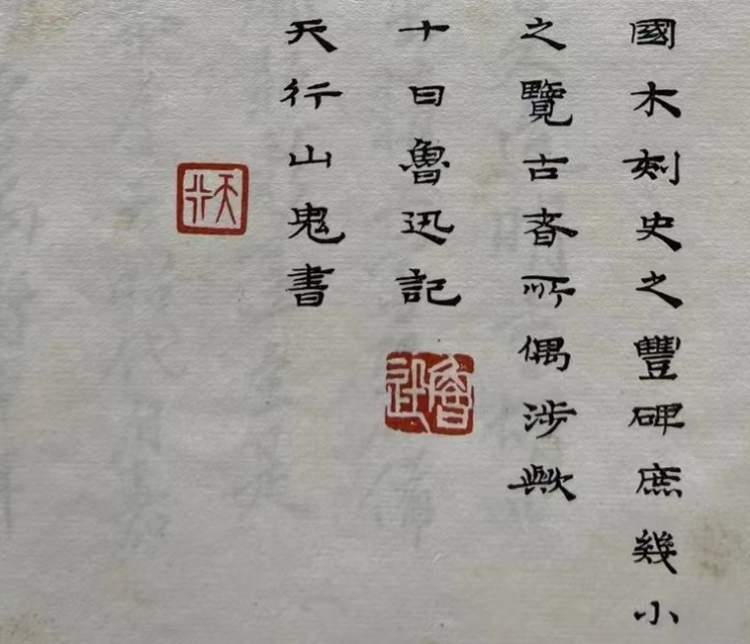 國木刻史之豐碑庶幾小
之覽古者所偶涉歟
十日魯迅記
魯迅
天行山鬼書
天行